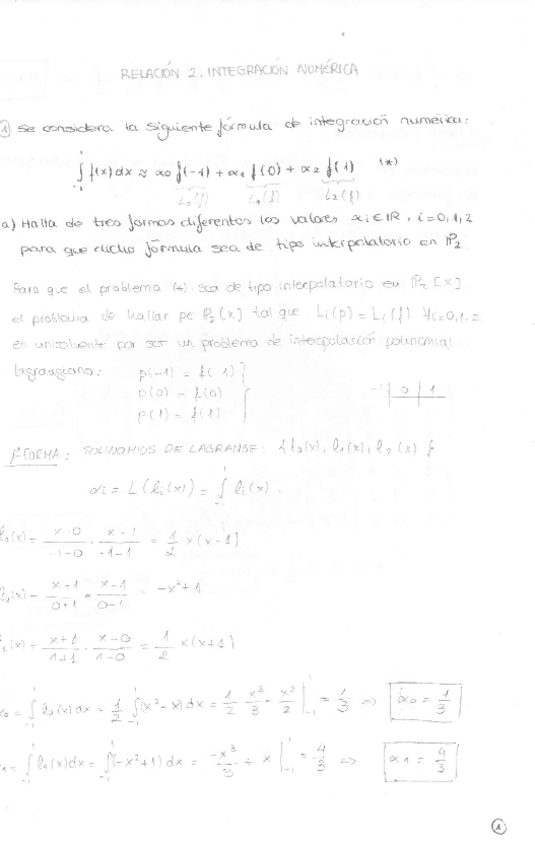 RELACIÓN 2. INTEGRACIÓN NUMÉRICA
1) Se considera la siguiente fórmula de integración numérica:
∫₋₁¹ f(x)dx ≈ α₀ f(-1) + α₁ f(0) + α₂ f(1) (*)
L₀(f) L₁(f) L₂(f)
a) Halla de tres formas diferentes los valores αᵢ ∈ ℝ, i=0,1,2
para que dicha fórmula sea de tipo interpolatorio en ℙ₂
Para que el problema (*) sea de tipo interpolatorio en ℙ₂[x]
el problema de hallar p∈ P₂[x] tal que Lᵢ(p) = Lᵢ(f) ∀i=0,1,2
es unisolvente por ser un problema de interpolación polinomial
lagrangiano: p(-1) = f(-1)
p(0) = f(0)
p(1) = f(1)
-1 | 0 | 1
FORMA: POLINOMIOS DE LAGRANGE: {l₀(x), l₁(x), l₂(x)}
αᵢ = L(lᵢ(x)) = ∫₋₁¹ lᵢ(x).
l₀(x) = (x-0)/(-1-0) · (x-1)/(-1-1) = 1/2 x(x-1)
l₁(x) = (x+1)/(0+1) · (x-1)/(0-1) = -x²+1
l₂(x) = (x+1)/(1+1) · (x-0)/(1-0) = 1/2 x(x+1)
α₀ = ∫₋₁¹ l₀(x)dx = 1/2 ∫₋₁¹ (x²-x)dx = 1/2 x³/3 - x²/2 |₋₁¹ = 1/3 ⇒ α₀ = 1/3
α₁ = ∫₋₁¹ l₁(x)dx = ∫₋₁¹ (-x²+1)dx = -x³/3 + x |₋₁¹ = 4/3 ⇒ α₁ = 4/3
1